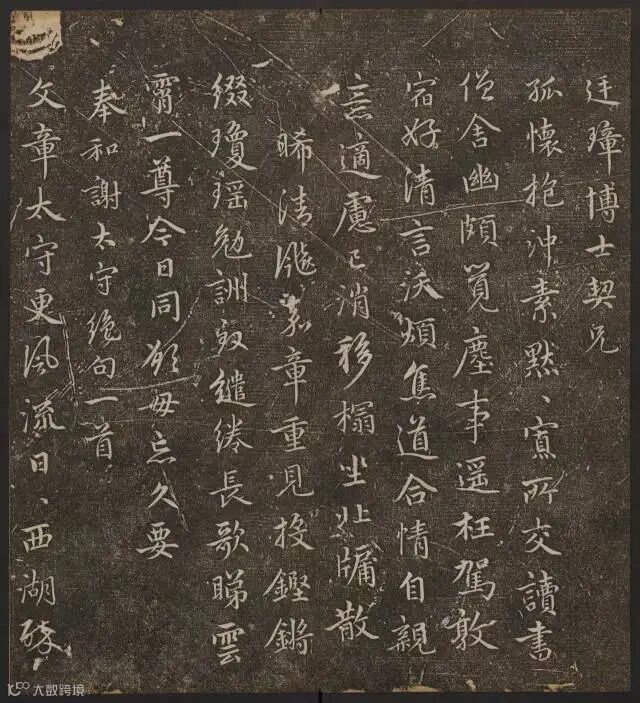 廷璋博士契兄
孤懷抱沖素默、寡所交讀書
僧舍幽頗覓塵事遥枉駕敦
宿好清言沃煩焦道合情自親
意適慮已消移榻坐北牖散
晞清飈嘉章重見投鏗鏘
綴瓊瑶勉詶叙繾綣長歌睇雲
霄一尊今日同願毋忘久要
奉和謝太守絶句一首
文章太守更風流日、西湖醉
大数跨境